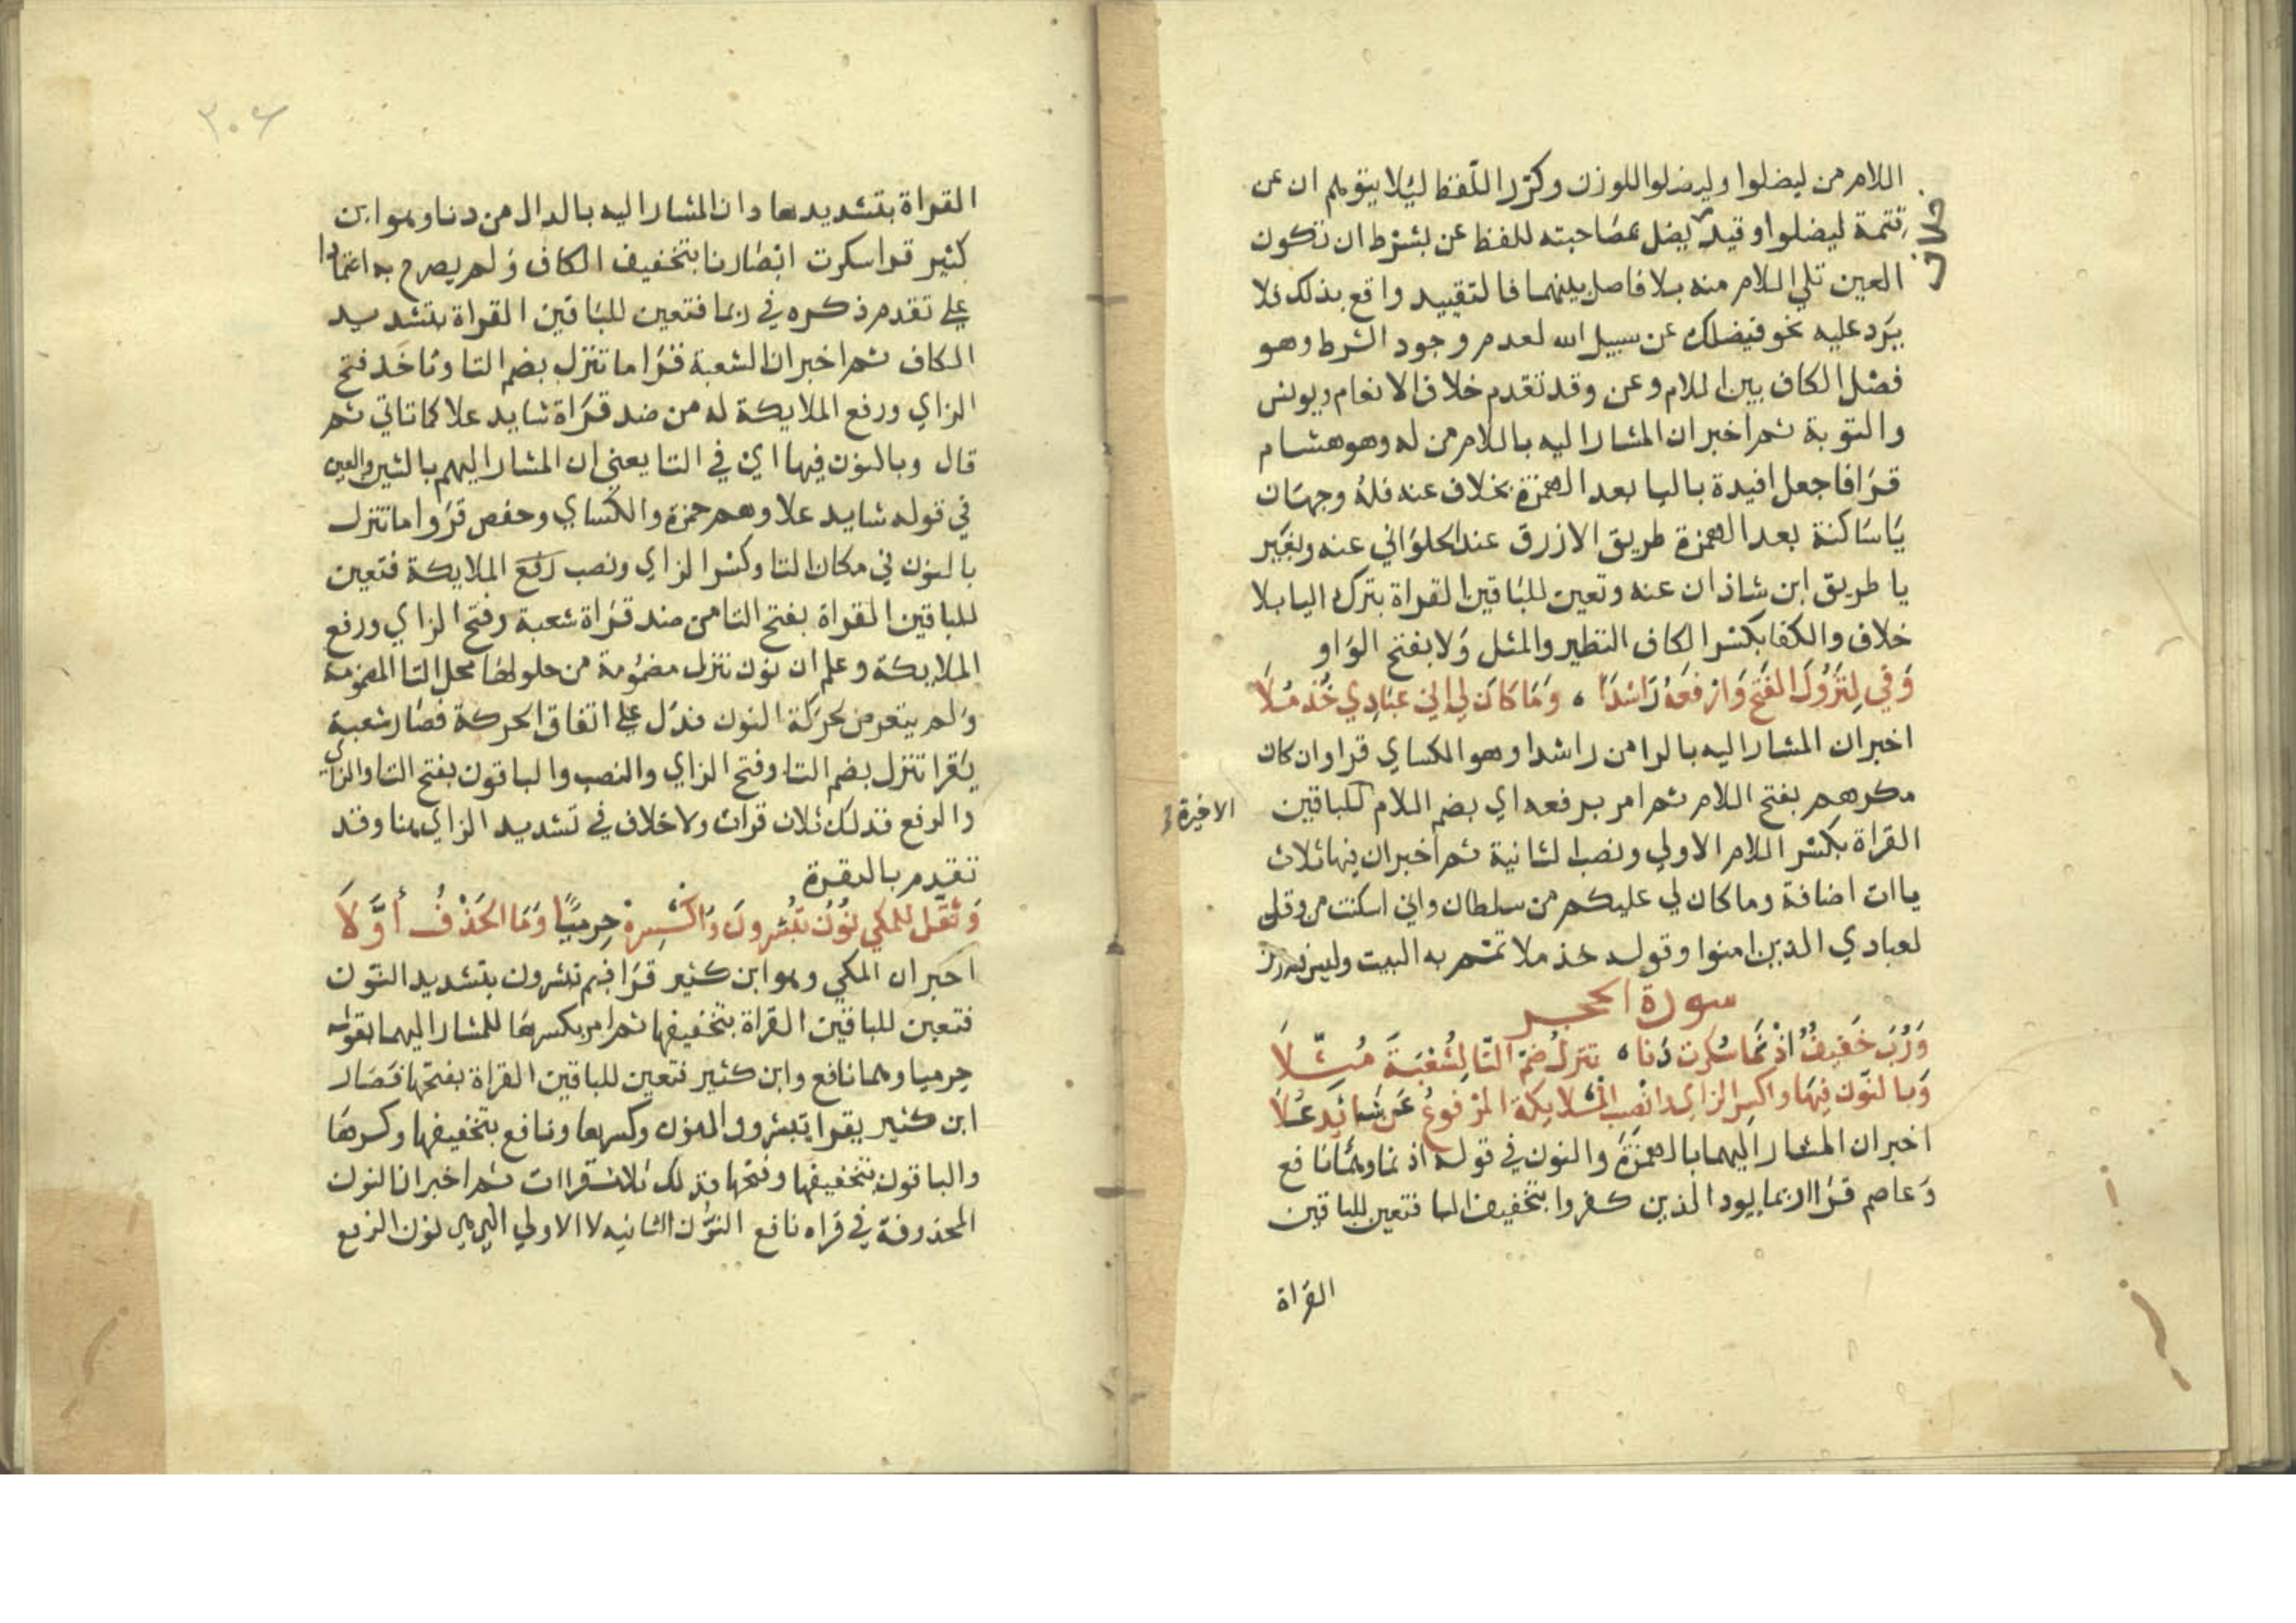 اللام من ليضلوا وليضلوا للوزن وكرر اللفظ ليلا يتوهم ان عن
تتمة ليضلوا وقيد يضل بمصاحبته للفظ عن بشرط ان تكون
العين تلي اللام منه بلا فاصل بينهما فالتقييد واقع بذلك فلا
يرد عليه نحو فيضلك عن سبيل الله لعدم وجود الشرط وهو
فصل الكاف بين اللام وعن وقد تقدم خلاف الانعام ويونس
والتوبة ثم اخبر ان المشار اليه باللام من له وهو هشام
قرا فاجعل افيدة باليا بعد الهمزة بخلاف عنه فله وجهان
يا ساكنة بعد الهمزة طريق الازرق عند الحلواني عنه وبغير
يا طريق ابن شاذان عنه وتعين للباقين القراة بترك اليا بلا
خلاف والكفا بكسر الكاف النظير والمثل ولا بفتح الواو
وَفي لِتَزُولَ الفَتح وَارفعهُ رَاشدًا ٥ وَمَا كَانَ لِي اني عبَادِي خُذ مُلَا
اخبر ان المشار اليه بالرا من راشدا وهو الكساي قرا وان كان
مكرهم بفتح اللام ثم امر برفعه اي بضم اللام للباقين
الاخيرة
القراة بكسر اللام الاولي ونصب الثانية ثم اخبر ان فيها ثلاث
يا ات اضافة وما كان لي عليكم من سلطان واني اسكنت من وقل
لعبادي الذين امنوا وقوله خذ ملا تمم به البيت وليس فيه رمز
سورة الحجر
وَرُبَ خَفِيفٌ اذ نَمَا سُكرت دَنا ٥ تنزل ضم التا لِشُعْبَةَ مُثّلَا
وَبالنّون فيهَا واكسر الزاي وانصب الملايكة المرفوع عَن شائِد عُلَا
اخبر ان المشار اليهما بالهمزة والنون في قوله اذ نما وهما نافع
وعاصم قرا اربما يود الذين كفروا بتخفيف البا فتعين للباقين
القراة
٣٠٤
القراة بتشديدها وان المشار اليه بالدال من دنا وهو ابن
كثير قرا سكرت ابصارنا بتخفيف الكاف ولم يصرح به اعتمادا
علي تقدم ذكره في ربما فتعين للباقين القراة بتشديد
الكاف ثم اخبر ان لشعبة قرا ما تنزل بضم التا وناخذ فتح
الزاي ورفع الملايكة له من ضد قراة شايد علا كما تاتي ثم
قال وبالنون فيها اي في التا يعني ان المشار اليهم بالشين والعين
في قوله شايد علا وهم حمزة والكساي وحفص قروا ما تنزل
بالنون في مكان التا وكسر الزاي ونصب رفع الملايكة فتعين
للباقين القراة بفتح التا من ضد قراة شعبة وفتح الزاي ورفع
الملايكة وعلم ان نون تنزل مضمومة من حلولها محل التا المضمومة
ولم يتعرض لحركة النون فدل علي اتفاق الحركة فصار شعبة
يقرا تنزل بضم التا وفتح الزاي والنصب والباقون بفتح التا والزاي
والرفع فذلك ثلاث قرات ولا خلاف في تشديد الزاي هنا وقد
تقدم بالبقرة
وَثُقّل للمكي نُوْن تُبشرونَ وَاكْسِرهْ حِرميّاً وَمَا الحَذْفُ أَوَّلَا
اخبر ان المكي وهو ابن كثير قرا فبم تبشرون بتشديد النون
فتعين للباقين القراة بتخفيفها ثم امر بكسرها للمشار اليهما بقوله
حرميا وهما نافع وابن كثير فتعين للباقين القراة بفتحها فصار
ابن كثير يقرا تبشرون النون وكسرها ونافع بتخفيفها وكسرها
والباقون بتخفيفها وفتحها فذلك ثلاث قراات ثم اخبر ان النون
المحذوفة في قراه نافع النون الثانيه لا الاولي التي هي نون الرفع